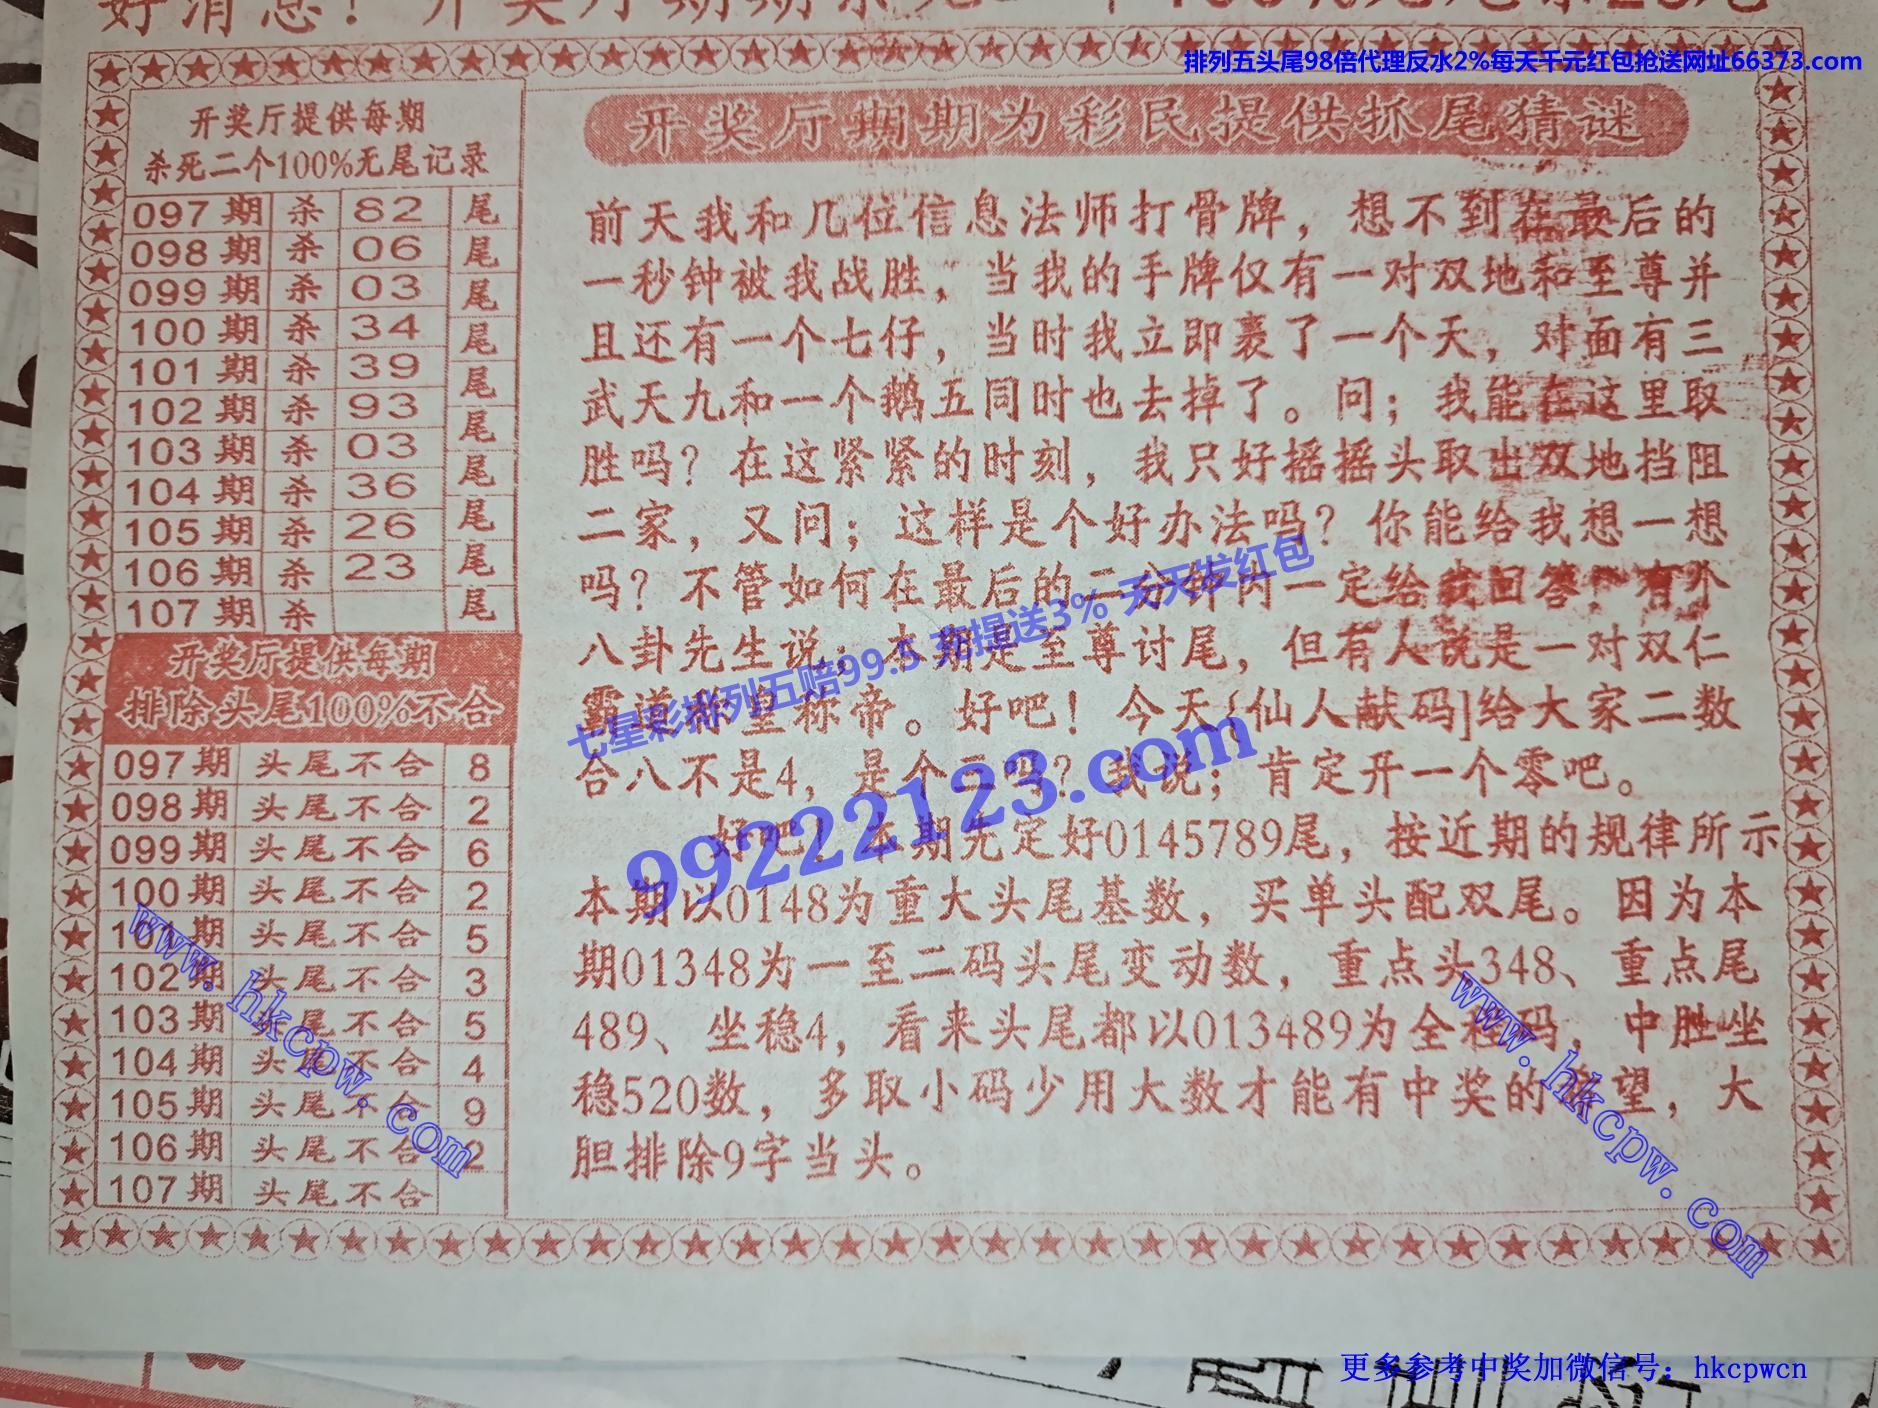 排列五头尾98倍代理反水2%每天千元红包抢送网址66373.com
开奖厅提供每期
杀死二个100%无尾记录
097期 杀 82 尾
098期 杀 06 尾
099期 杀 03 尾
100期 杀 34 尾
101期 杀 39 尾
102期 杀 93 尾
103期 杀 03 尾
104期 杀 36 尾
105期 杀 26 尾
106期 杀 23 尾
107期 杀 尾
开奖厅提供每期
排除头尾100%不合
097期 头尾不合 8
098期 头尾不合 2
099期 头尾不合 6
100期 头尾不合 2
101期 头尾不合 5
102期 头尾不合 3
103期 头尾不合 5
104期 头尾不合 4
105期 头尾不合 9
106期 头尾不合 2
107期 头尾不合
开奖厅期期为彩民提供抓尾猜谜
前天我和几位信息法师打骨牌，想不到在最后的
一秒钟被我战胜，当我的手牌仅有一对双地和至尊并
且还有一个七仔，当时我立即裹了一个天，对面有三
武天九和一个鹅五同时也去掉了。问；我能在这里取
胜吗？在这紧紧的时刻，我只好摇摇头取出双地挡阻
二家，又问；这样是个好办法吗？你能给我想一想
吗？不管如何在最后的二分钟内一定给我回答，有个
八卦先生说；本期是至尊讨尾，但有人说是一对双仁
霸道称皇称帝。好吧！今天{仙人献码]给大家二数
合八不是4，是个二吗？我说；肯定开一个零吧。
好吧！本期先定好0145789尾，按近期的规律所示
本期以0148为重大头尾基数，买单头配双尾。因为本
期01348为一至二码头尾变动数，重点头348、重点尾
489、坐稳4，看来头尾都以013489为全程码，中胜坐
稳520数，多取小码少用大数才能有中奖的希望，大
胆排除9字当头。
七星彩排列五赔99.5 充提送3% 天天发红包
99222123.com
www.hkcpw.com
www.hkcpw.com
更多参考中奖加微信号：hkcpwcn